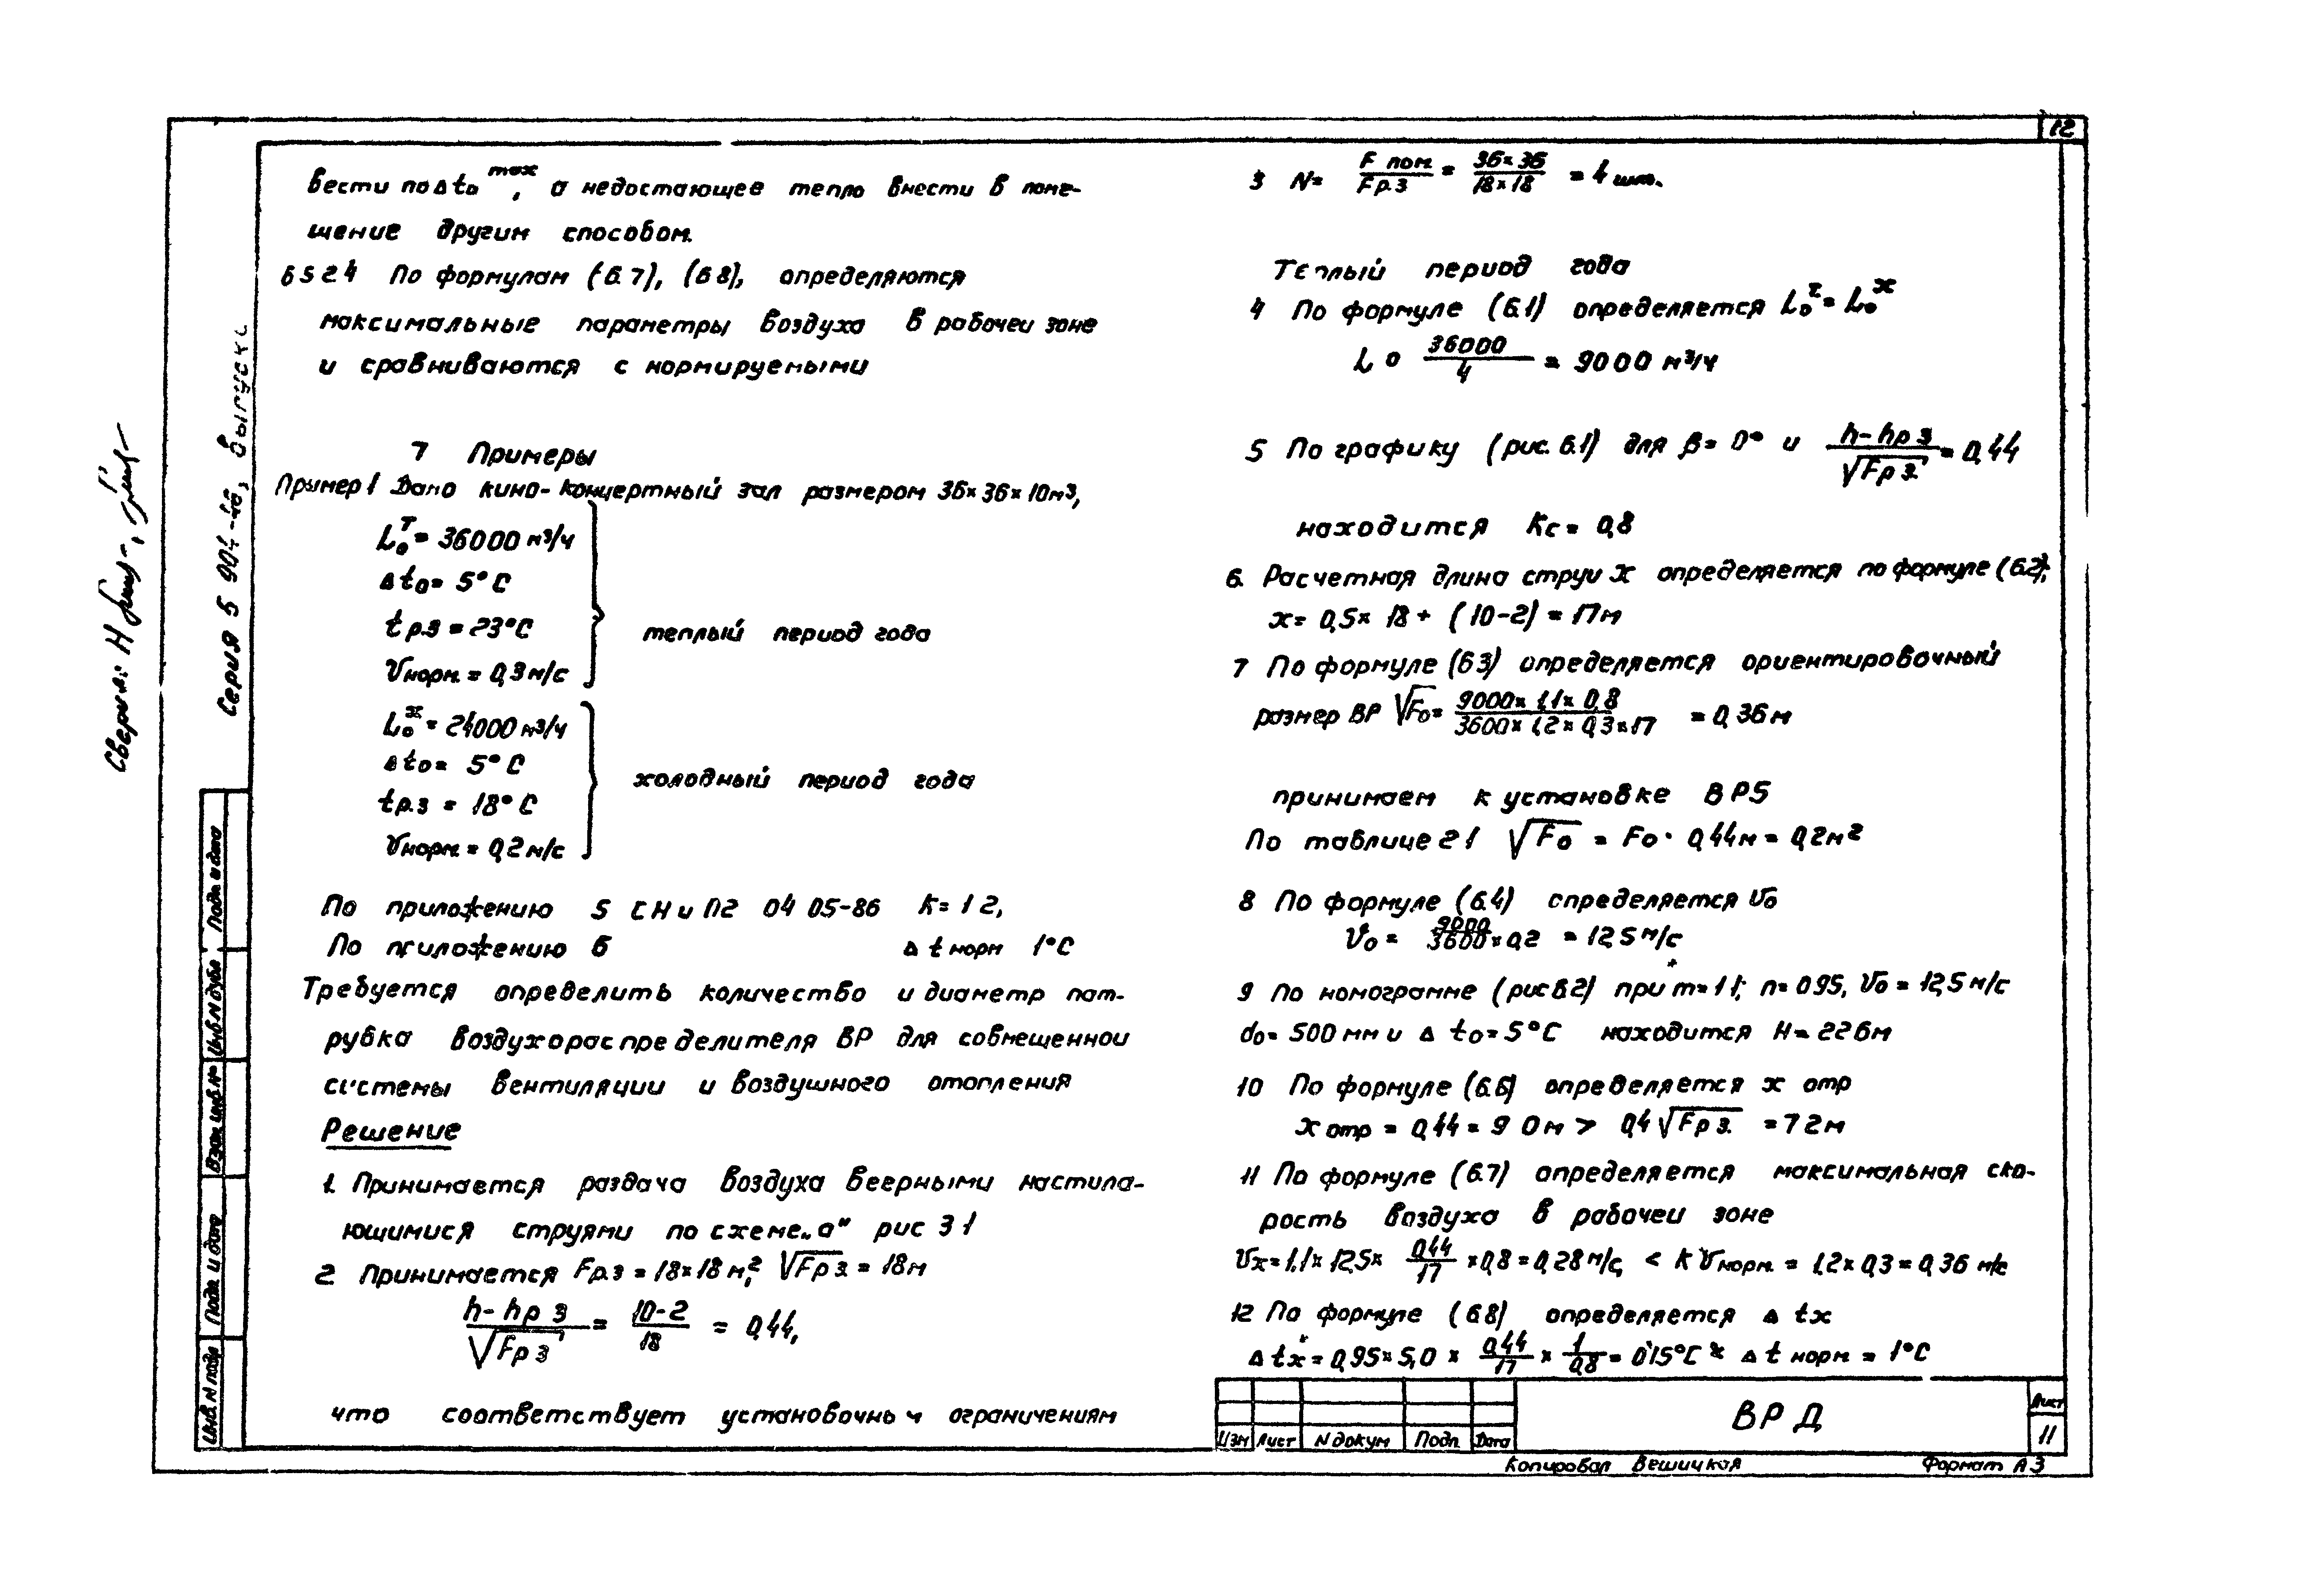 12
вести по Δto max, а недостающее тепло внести в поме-
щение другим способом.
6 5 2 4 По формулам (6.7), (6 8), определяются
максимальные параметры воздуха в рабочеи зоне
и сравниваются с нормируемыми
7 Примеры
Пример 1 Дано кино-концертный зал размером 36×36×10м³,
L₀ᵀ = 36000 м³/ч
Δto = 5°C
tр.з = 23°C
Vнорм. = 0,3 м/с
теплый период года
L₀ˣ = 24000 м³/ч
Δto = 5°C
tр.з = 18°C
Vнорм. = 0,2 м/с
холодный период года
По приложению 5 СНиП2 04 05-86 К = 1 2,
По приложению 6 Δ t норм 1°C
Требуется определить количество и диаметр пат-
рубка воздухораспределителя ВР для совмещеннои
системы вентиляции и воздушного отопления
Решение
1. Принимается раздача воздуха веерными настила-
ющимися струями по схеме „а" рис 3 1
2 Принимается Fр.з = 18×18 м², √Fр з. = 18м
h-hр з / √Fр з = 10-2 / 18 = 0,44,
что соответствует установочным ограничениям
3 N = F пом. / Fр.з = 36×36 / 18×18 = 4 шт.
Теплый период года
4 По формуле (6.1) определяется L₀ᵀ = L₀ˣ
L о 36000 / 4 = 9000 м³/ч
5 По графику (рис. 6.1) для β = 0° и h-hр з / √Fр з. = 0,44
находится Кс = 0,8
6. Расчетная длина струи х определяется по формуле (6.2);
х = 0,5× 18 + (10-2) = 17м
7 По формуле (6 3) определяется ориентировочный
размер ВР √Fo = 9000× 1,1× 0,8 / 3600× 1,2× 0,3×17 = 0,36 м
принимаем к установке ВР5
По таблице 2 1 √Fo = Fo · 0,44м = 0,2м²
8 По формуле (6.4) определяется Vo
Vo = 9000 / 3600×0,2 = 12 5 м/с
9 По номограмме (рис 6.2) при m = 1 1; n = 0 95, Vo = 12,5 м/с
do = 500 мм и Δ to = 5°C находится H = 2 2 6м
10 По формуле (6.6) определяется х отр
х отр = 0,44 = 9 0м > 0,4 √Fр з. = 7 2м
11 По формуле (6.7) определяется максимальная ско-
рость воздуха в рабочеи зоне
Vх = 1,1× 12,5× 0,44 / 17 ×0,8 = 0,28 м/с, < К Vнорм. = 1,2× 0,3 = 0,36 м/с
12 По формуле (6.8) определяется Δ tх
Δ tх = 0,95×5,0 × 0,44 / 17 × 1 / 0,8 = 0,15°C < Δ t норм. = 1°C
Изм Лист N докум Подп Дата
ВР Д
Лист
11
Копировал Вешицкая Формат А3
Серия 5 904-, выпуск
Сверил: Н
Подп. и дата
Инв N дубл
Взам инв N
Подп. и дата
Инв N подл